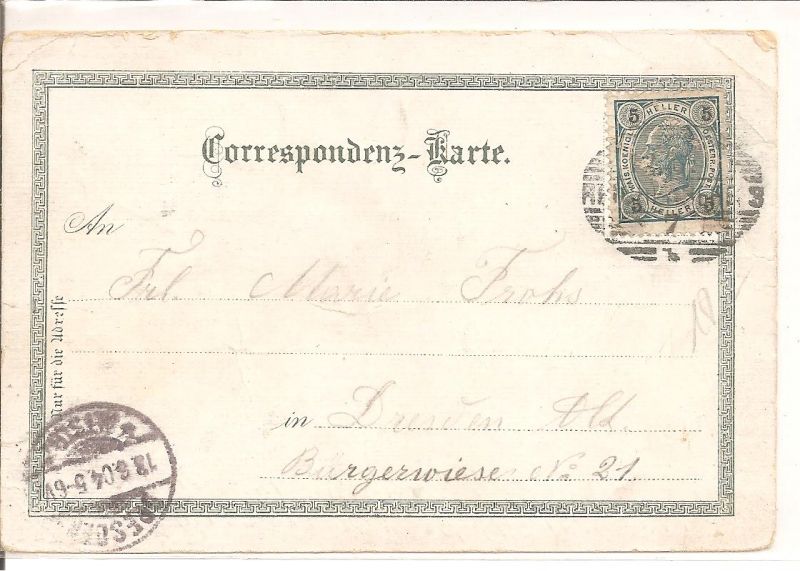 Correspondenz-Karte.
5 HELLER 5
KAIS. KOENIGL.
OESTERR. POST
5 HELLER 5
An
Frl. Marie Frohs
in Dresden Alt.
Bürgerwiese No 21
Nur für die Adresse
18
DRESDEN
13.8.04.5-6V